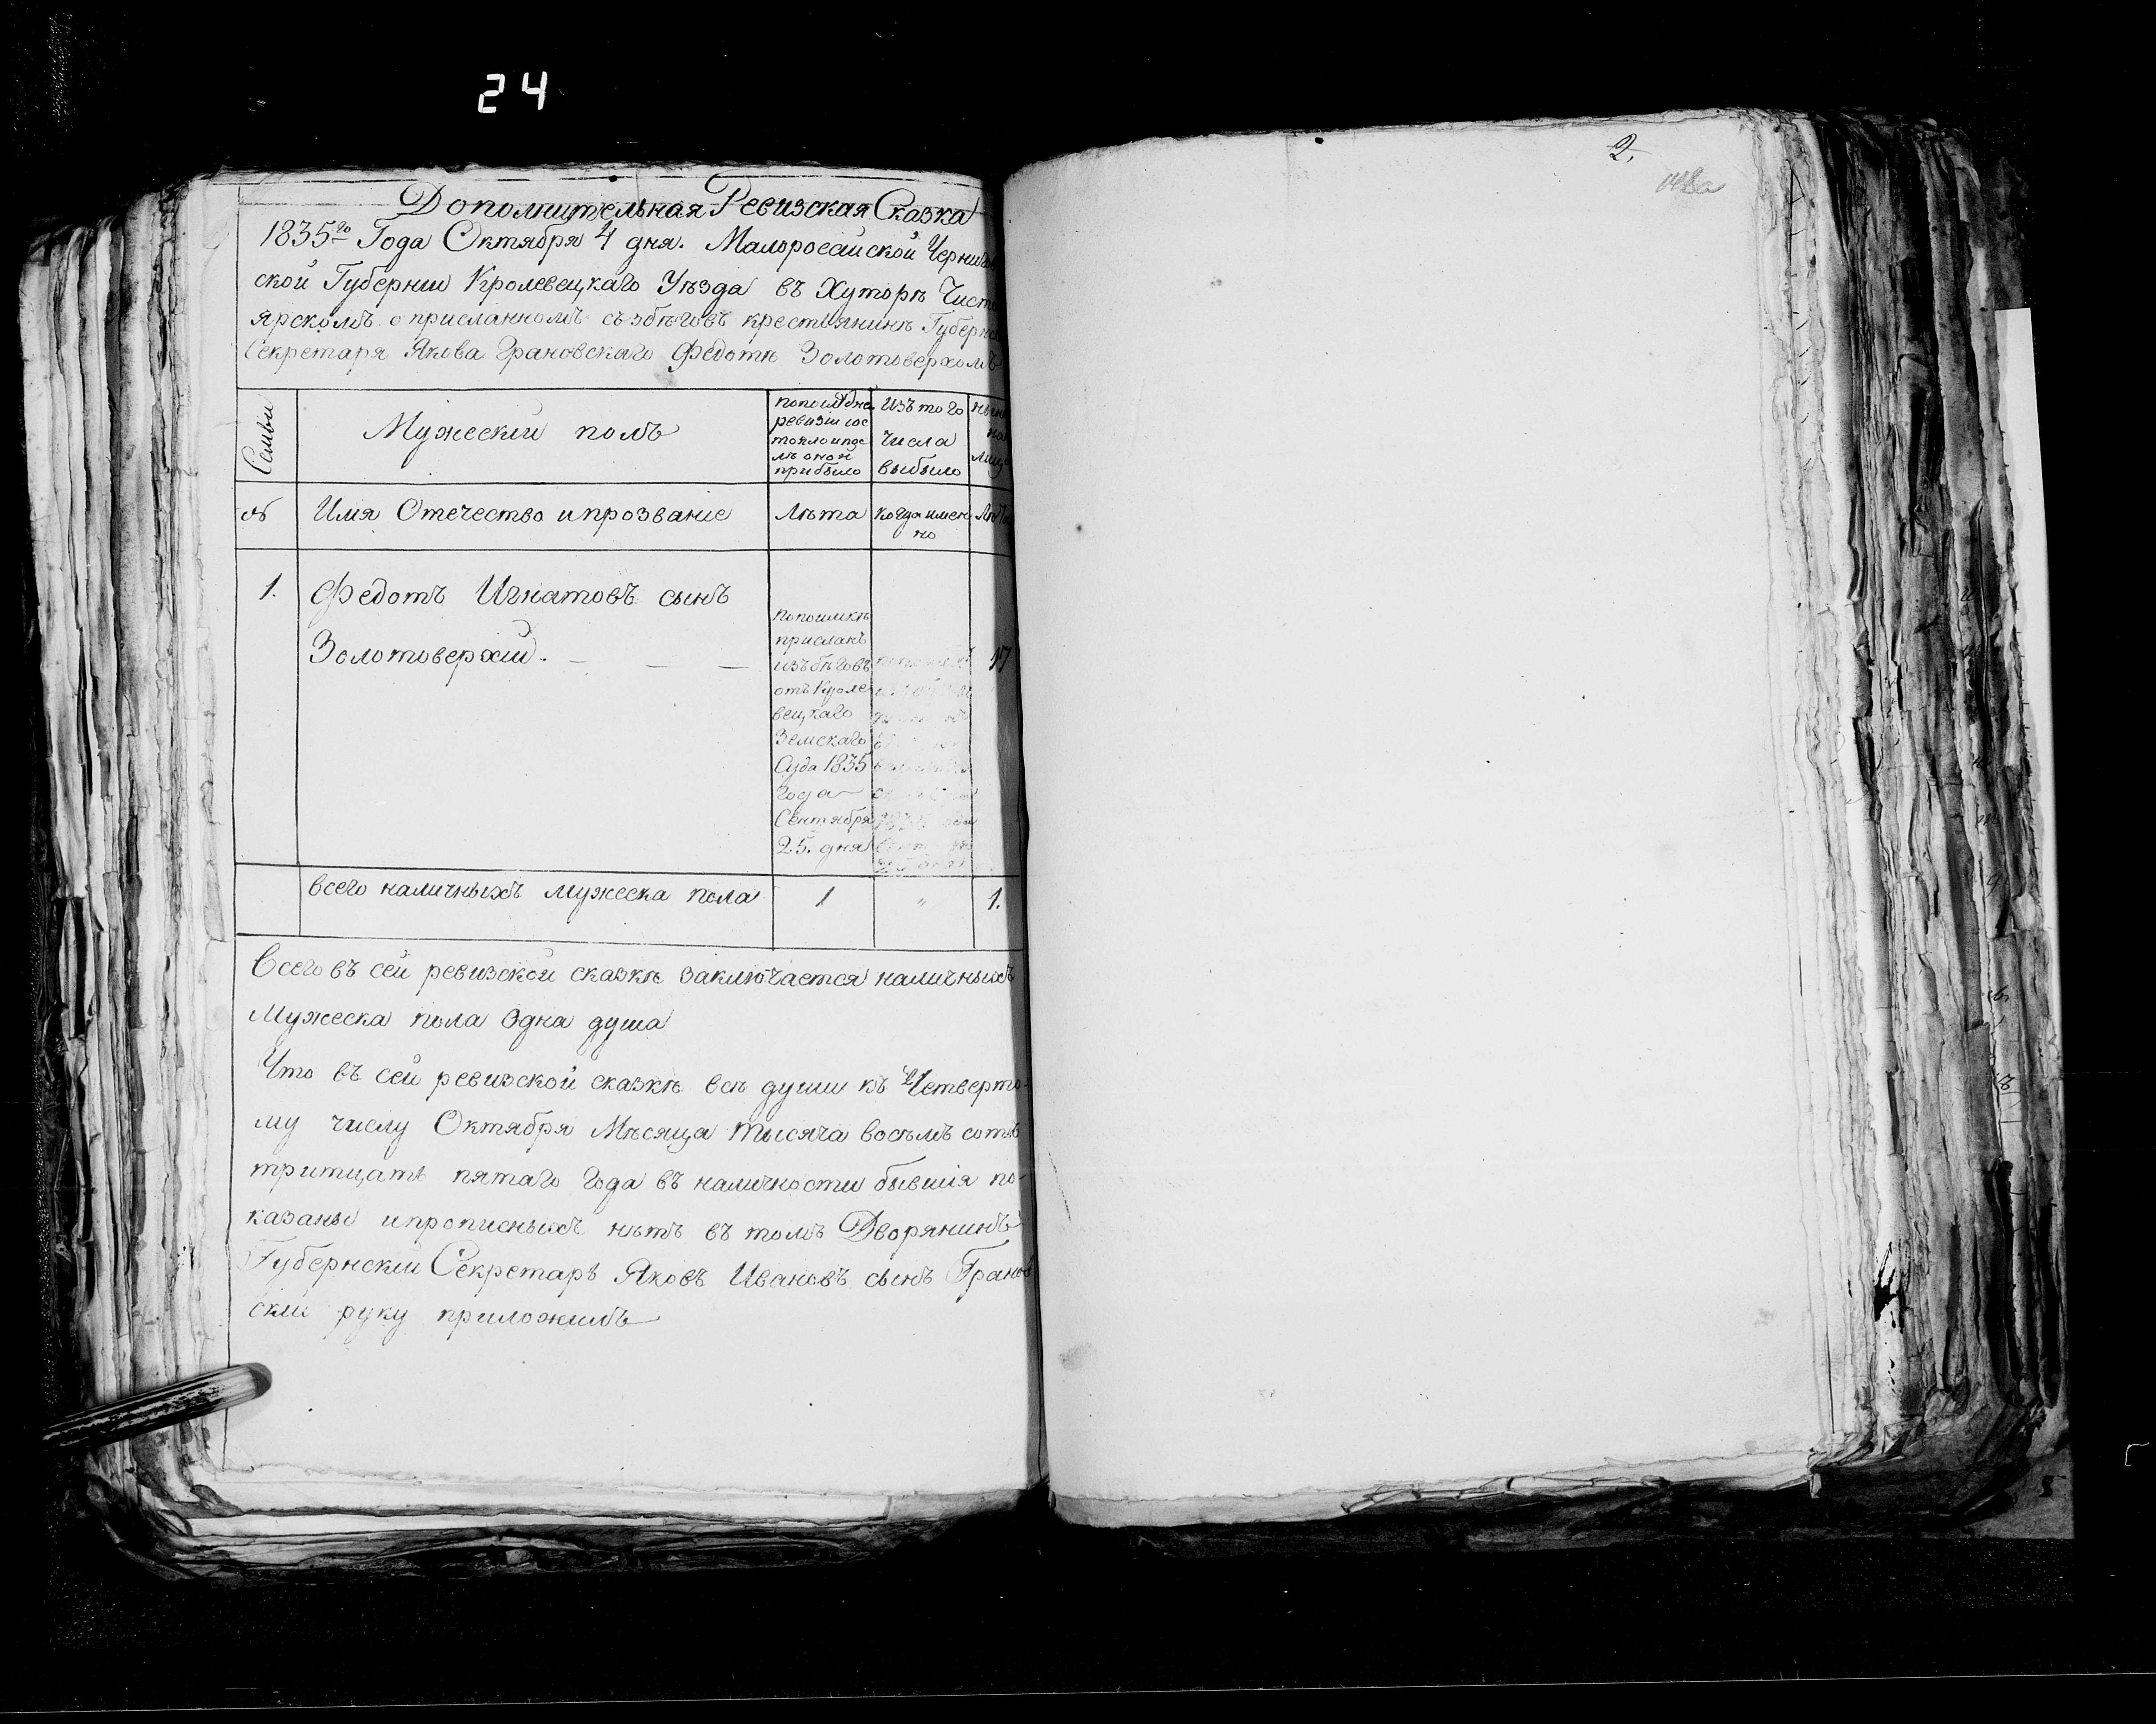 24
Дополнительная Ревизская Сказка
1835го Года Октября 4 дня. Малоросийской Чернигов
ской Губернии Кролевецкаго Уѣзда въ Хуторѣ Чисто
ярскомъ о присланномъ съ збѣговъ крестьянинѣ Губернс
Секретаря Якова Грановскаго Федотѣ Золотоверхомъ
Семьи
Мужеский полъ
попослѣдне
ревизии сос
тояло и пос
лѣ оной
прибыло
Изъ того
числа
выбыло
нынѣ
на
лице
№
Имя Отечество и прозвание
Лѣта
когда имен
но
Лѣта
1.
Федотъ Игнатовъ сынъ
Золотоверхий.
попоимкѣ
присланъ
изъ бѣговъ
отъ Кроле
вецкаго
Земскаго
Суда 1835
года
Сентября
25. дня
17
всего наличныхъ мужеска пола
1
"
1.
Всего въ сей ревизской сказкѣ заключается наличныхъ
Мужеска пола Одна душа
Что въ сей ревизской сказкѣ всѣ души къ Четверто-
му числу Октября Мѣсяца тысяча восѣмъ сотъ
тритцать пятаго года въ наличности бывшия по-
казаны и прописныхъ нѣтъ въ томъ Дворянинъ
Губернский Секретарь Яковъ Ивановъ сынъ Гранов
ский руку приложилъ
2.